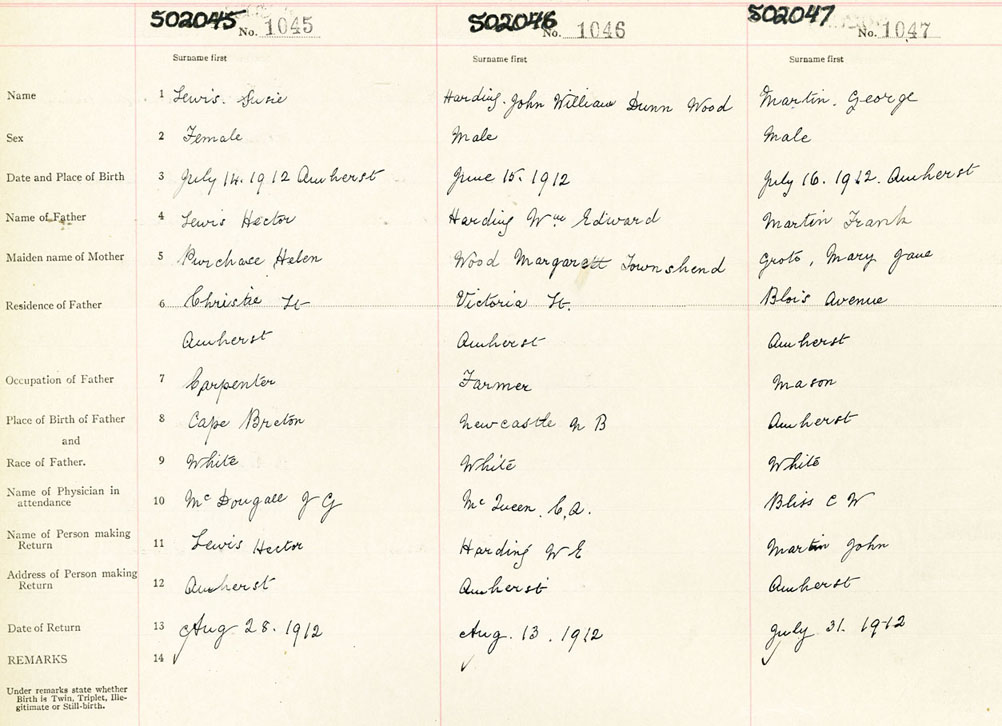 502045 No. 1045 502046 No. 1046 502047 No. 1047
Surname first Surname first Surname first
Name 1 Lewis. Susie Harding. John William Dunn Wood Martin. George
Sex 2 Female Male Male
Date and Place of Birth 3 July 14. 1912 Amherst June 15. 1912 July 16. 1912. Amherst
Name of Father 4 Lewis Hector Harding Wm Edward Martin Frank
Maiden name of Mother 5 Purchase Helen Wood Margarett Townshend Groto, Mary Jane
Residence of Father 6 Christie St Victoria St. Blois Avenue
Amherst Amherst Amherst
Occupation of Father 7 Carpenter Farmer Mason
Place of Birth of Father 8 Cape Breton Newcastle N B Amherst
and
Race of Father. 9 White White White
Name of Physician in
attendance 10 Mc Dougall J G Mc Queen. C. A. Bliss C W
Name of Person making
Return 11 Lewis Hector Harding W E Martin John
Address of Person making
Return 12 Amherst Amherst Amherst
Date of Return 13 Aug 28. 1912 Aug. 13. 1912 July 31. 1912
REMARKS 14
Under remarks state whether
Birth is Twin, Triplet, Ille-
gitimate or Still-birth.